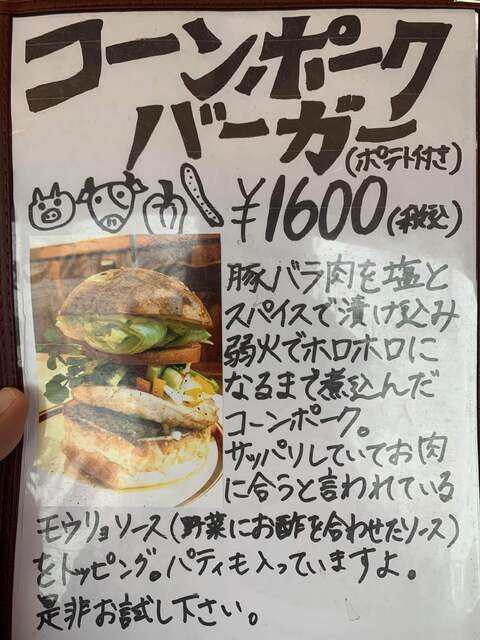 コーンポーク
バーガー
(ポテト付き)
¥1600(税込)
豚バラ肉を塩と
スパイスで漬け込み
弱火でホロホロに
なるまで煮込んだ
コーンポーク。
サッパリしていてお肉
に合うと言われている
モウリョソース(野菜にお酢を合わせたソース)
をトッピング。パティも入っていますよ。
是非お試し下さい。